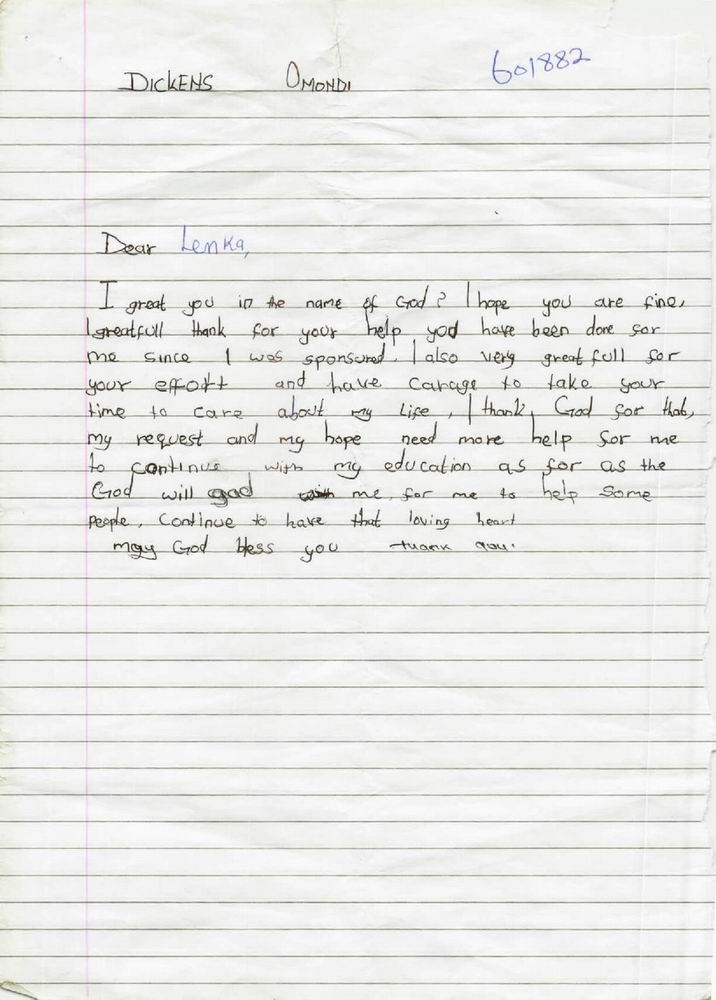 DICKENS OMONDI 601882
Dear Lenka,
I great you in the name of God? I hope you are fine,
I greatfull thank for your help yod have been done for
me since I was sponsured. I also very great full for
your effott and have Carage to take your
time to care about my Life, I thank, God for that,
my request and my hope need more help for me
to continue with my education as for as the
God will god me for me to help Some
people, Continue to have that loving heart
may God bless you thank you.